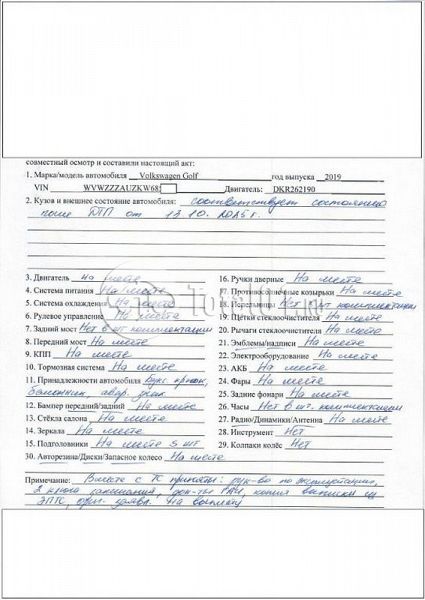 совместный осмотр и составили настоящий акт:
1. Марка/модель автомобиля Volkswagen Golf год выпуска 2019
VIN WVWZZZAUZKW685 Двигатель: DKR262190
2. Кузов и внешнее состояние автомобиля: соответствует состоянию
после ДТП от 13.10.2025 г.
3. Двигатель на месте
4. Система питания На месте
5. Система охлаждения На месте
6. Рулевое управление На месте
7. Задний мост Нет в шт. комплектации
8. Передний мост На месте
9. КПП На месте
10. Тормозная система На месте
11. Принадлежности автомобиля букс. крюк,
балонник, авар. знак
12. Бампер передний/задний На месте
13. Стёкла салона На месте
14. Зеркала На месте
15. Подголовники На месте 5 шт.
16. Ручки дверные На месте
17. Противосолнечные козырьки На месте
18. Нет в шт. комплектации
19. Щётки стеклоочистителя На месте
20. Рычаги стеклоочистителя На месте
21. Эмблемы/надписи На месте
22. Электрооборудование На месте
23. АКБ На месте
24. Фары На месте
25. Задние фонари На месте
26. Часы Нет в шт. комплектации
27. Радио/Динамики/Антенна На месте
28. Инструмент Нет
29. Колпаки колёс Нет
30. Авторезина/Диски/Запасное колесо На месте
Примечание: Вместе с ТС приняты: рук-во по эксплуатации,
2 ключа зажигания, док-ты копия выписки из
ЭПТС, ориг. заявл. На выплату